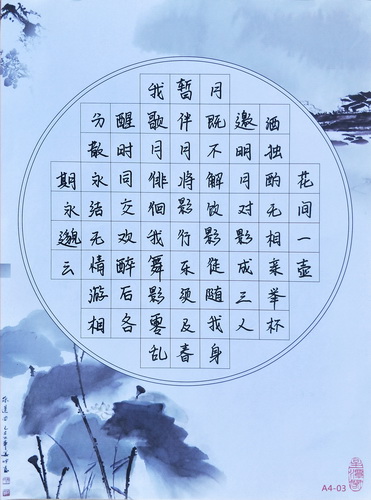 花间一壶
酒独酌无相亲举杯
邀明月对影成三人
月既不解饮影徒随我身
暂伴月将影行乐须及春
我歌月徘徊我舞影零乱
醒时同交欢醉后各
分散永结无情游相
期永邈云
A4-03